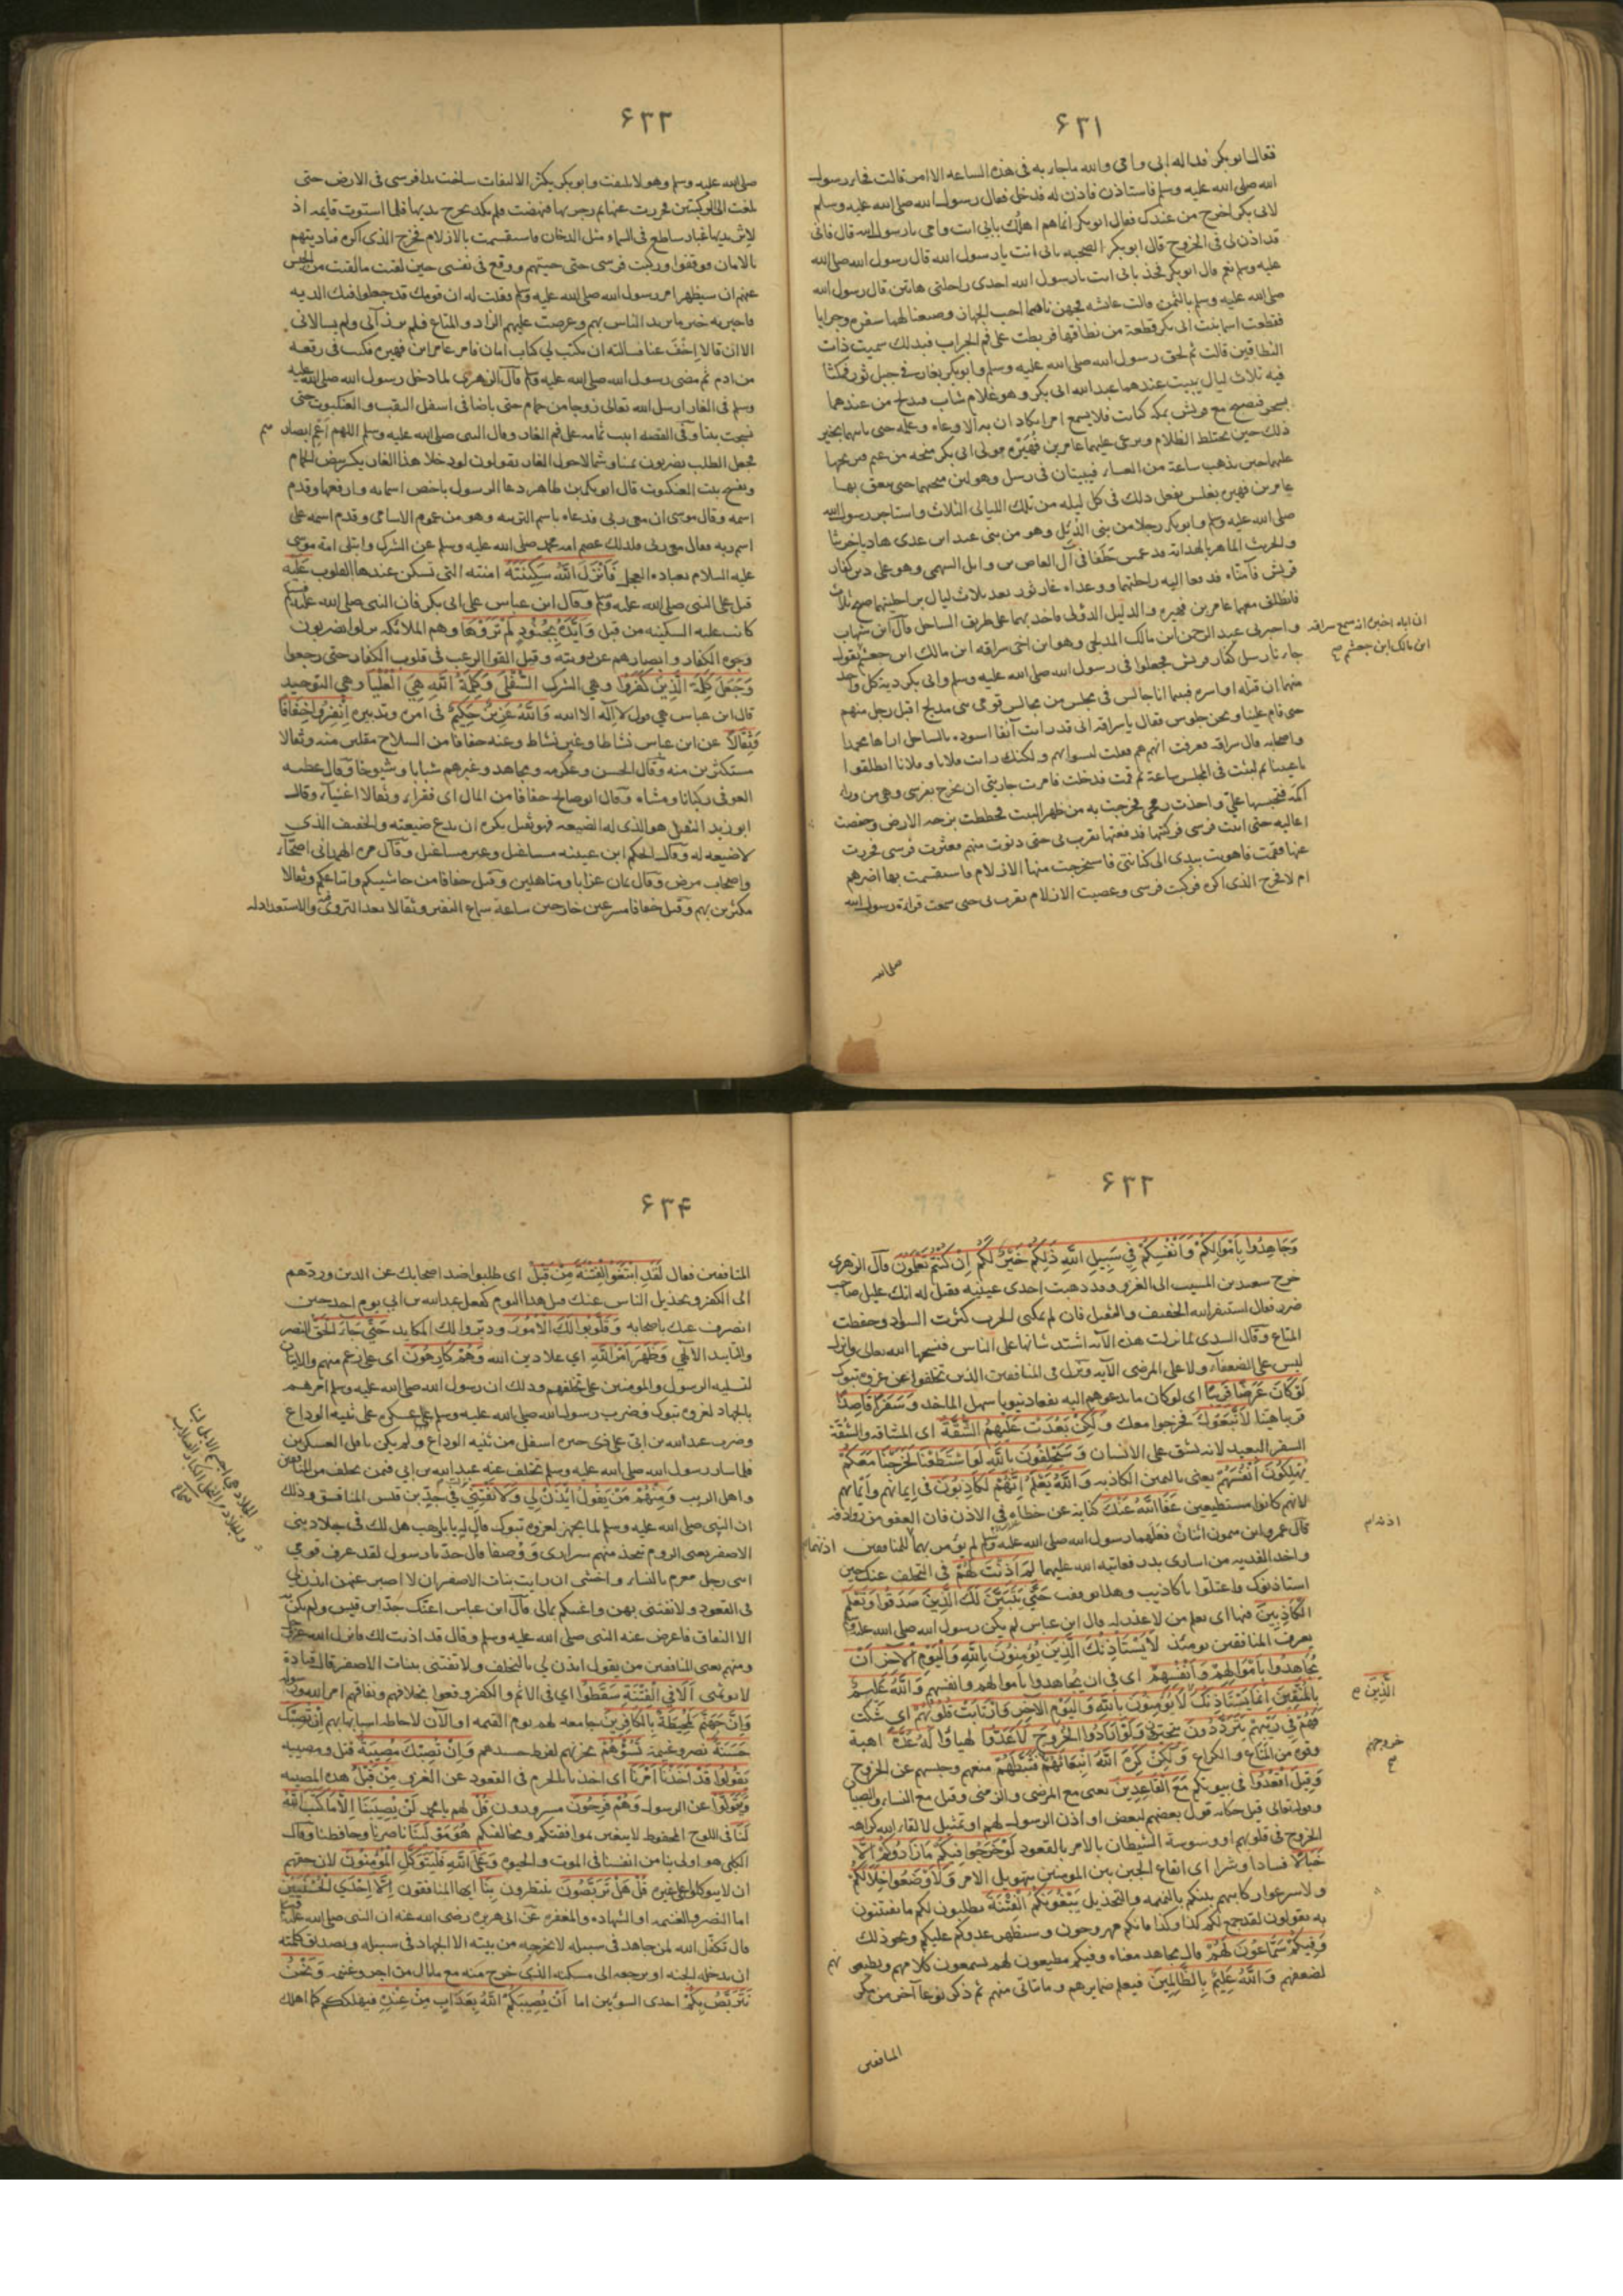 ۶۳۱
فقال ابو بكر فداله ابى وامى والله ماجاء به فى هذه الساعه الا امر قالت فجاء رسول
الله صلى الله عليه وسلم فاستاذن فاذن له فدخل فقال رسول الله صلى الله عليه وسلم
لابى بكر اخرج من عندك فقال ابو بكر انما هم اهلك بابى انت وامى يا رسول الله قال فانى
قد اذن لى فى الخروج قال ابو بكر الصحبه بابى انت يا رسول الله قال رسول الله صلى الله
عليه وسلم نعم قال ابو بكر فخذ بابى انت يا رسول الله احدى راحلتى هاتين قال رسول الله
صلى الله عليه وسلم بالثمن قالت عائشه فجهزناهما احب الجهاز وصنعنا لهما سفره وجرابا
فقطعت اسما بنت ابى بكر قطعة من نطاقها فربطت على فم الجراب فبذلك سميت ذات
النطاقين قالت ثم لحق رسول الله صلى الله عليه وسلم وابو بكر بغار فى جبل ثور فمكثا
فيه ثلاث ليال يبيت عندهما عبد الله ابى بكر وهو غلام شاب فيدلج من عندهما
بسحر فيصبح مع قريش بمكه كبائت فلا يسمع امرا يكادان به الا وعاه وعلمه حتى ياتيهما بخبر
ذلك حين يختلط الظلام ويرعى عليهما عامر بن فهيره مولى ابى بكر منحه من غنم فيريحها
عليهما حين يذهب ساعة من العشاء فيبيتان فى رسل وهو لبن منحهما حتى ينعق بها
عامر بن فهيره بغلس يفعل ذلك فى كل ليله من تلك الليالى الثلاث واستاجر رسول الله
صلى الله عليه وسلم وابو بكر رجلا من بنى الدئل وهو من بنى عبد ابن عدى هاديا خريتا
والخريت الماهر بالهداية قد غمس حلفا فى آل العاص بن وايل السهمى وهو على دين كفار
قريش فامناه فدفعا اليه راحلتيهما ووعداه غار ثور بعد ثلاث ليال براحلتيهما صبح ثلاث
فانطلق معهما عامر بن فهيره والدليل الدؤلى فاخذ بهما على طريق الساحل قال ابن شهاب
واخبرنى عبد الرحمن ابن مالك المدلجى وهو ابن اخى سراقه ابن مالك ابن جعشم يقول
ان اباه اخبره انه سمع سراقه
ابن مالك ابن جعشم صح
جاءنا رسل كفار قريش فجعلوا فى رسول الله صلى الله عليه وسلم وابى بكر دية كل واحد
منهما ان قتله او اسره فبينما انا جالس فى مجلس من مجالس قومى بنى مدلج اقبل رجل منهم
حتى قام علينا ونحن جلوس فقال يا سراقه انى قد رايت آنفا اسوده بالساحل اراها محمدا
واصحابه قال سراقه فعرفت انهم هم فقلت ليسوا بهم ولكنك رايت فلانا وفلانا انطلقوا
باعيننا ثم لبثت فى المجلس ساعة ثم قمت فدخلت فامرت جاريتى ان تخرج بفرسى وهى من وراء
اكمة فتحبسها على واخذت رمحى فخرجت به من ظهر البيت فخططت بزجه الارض وخفضت
اعاليه حتى اتيت فرسى فركبتها فدفعتها تقرب بى حتى دنوت منهم فعثرت فرسى فخررت
عنها فقمت فاهويت بيدى الى كنانتى فاستخرجت منها الازلام فاستقسمت بها اضرهم
ام لا فخرج الذى اكره فركبت فرسى وعصيت الازلام تقرب بى حتى سمعت قراءة رسول الله
صلى الله
۶۳۲
صلى الله عليه وسلم وهو لا يلتفت وابو بكر يكثر الالتفات ساخت يدا فرسى فى الارض حتى
بلغت الى الركبتين فخررت عنها ثم زجرتها فنهضت فلم تكد تخرج يديها فلما استوت قايمه اذ
لاثر يديها غبار ساطع فى السماء مثل الدخان فاستقسمت بالازلام فخرج الذى اكره فناديتهم
بالامان فوقفوا وركبت فرسى حتى جيتهم ووقع فى نفسى حين لقيت ما لقيت من الحبس
عنهم ان سيظهر امر رسول الله صلى الله عليه وسلم فقلت له ان قومك قد جعلوا فيك الديه
فاخبرته خبر ما يريد الناس بهم وعرضت عليهم الزاد والمتاع فلم يرزآنى ولم يسالانى
الا ان قالا اخف عنا فسالته ان يكتب لى كتاب امان فامر عامر ابن فهيره فكتب فى رقعه
من ادم ثم مضى رسول الله صلى الله عليه وسلم قال الزهرى لما دخل رسول الله صلى الله عليه
وسلم فى الغار ارسل الله تعالى زوجا من حمام حتى باضا فى اسفل النقب والعنكبوت حتى
نسجت بيتا وفى القصه انبت ثمامه على فم الغار وقال النبى صلى الله عليه وسلم اللهم اعم ابصار هم
فجعل الطلب يضربون يمينا وشمالا حول الغار يقولون لو دخلا هذا الغار يكسر بيض الحمام
وتفسخ بيت العنكبوت قال ابو بكر بن طاهر دعا الرسول باخص اسمائه وارفعها وقدم
اسمه وقال موسى ان معى ربى فدعاه باسم التربيه وهو من عموم الاسامى وقدم اسمه على
اسم ربه فقال معى ربى فلذلك عصم امه محمد صلى الله عليه وسلم عن الشرك وابتلى امة موسى
عليه السلام بعباده العجل فَاَنْزَلَ اللهُ سَكِينَتَهُ امنته التى تسكن عندها القلوب عَلَيْهِ
قيل على النبى صلى الله عليه وسلم وقال ابن عباس على ابى بكر فان النبى صلى الله عليه وسلم
كانت عليه السكينه من قبل وَاَيَّدَهُ بِجُنُودٍ لَمْ تَرَوْهَا وهم الملائكه نزلوا يضربون
وجوه الكفار وابصارهم عن رويته وقيل القوا الرعب فى قلوب الكفار حتى رجعوا
وَجَعَلَ كَلِمَةَ الَّذِينَ كَفَرُوا وهى الشرك السُّفْلَى وَكَلِمَةُ اللهِ هِيَ الْعُلْيَا وهى التوحيد
قال ابن عباس هى قول لا اله الا الله وَاللهُ عَزِيزٌ حَكِيمٌ فى امره وتدبيره اِنْفِرُوا خِفَافًا
وَثِقَالًا عن ابن عباس نشاطا وغير نشاط وعنه خفافا من السلاح مقلين منه وثقالا
مستكثرين منه وقال الحسن وعكرمه ومجاهد وغيرهم شبابا وشيوخا وقال عطيه
العوفى ركبانا ومشاه وقال ابو صالح خفافا من المال اى فقراء وثقالا اغنياء وقال
ابو زيد الثقيل هو الذى له الضيعه فهو ثقيل يكره ان يدع ضيعته والخفيف الذى
لا ضيعه له وقال الحكم ابن عيينه مشاغيل وغير مشاغيل وقال مره الهمدانى اصحاء
واصحاب مرض وقال يمان عزابا ومتاهلين وقيل خفافا من حاشيتكم واتباعكم وثقالا
مكثرين بهم وقيل خفافا مسرعين خارجين ساعة سماع النفير وثقالا بعد التروى فيه والاستعداد له
۶۳۳
وَجَاهِدُوا بِاَمْوَالِكُمْ وَاَنْفُسِكُمْ فِي سَبِيلِ اللهِ ذَلِكُمْ خَيْرٌ لَكُمْ اِنْ كُنْتُمْ تَعْلَمُونَ قال الزهرى
خرج سعيد بن المسيب الى الغزو وقد ذهبت احدى عينيه فقيل له انك عليل صاحب
ضرر فقال استنفر الله الخفيف والثقيل فان لم يمكنى الحرب كثرت السواد وحفظت
المتاع وقال السدى لما نزلت هذه الآيه اشتد شانها على الناس فنسخها الله تعالى وانزل
ليس على الضعفاء ولا على المرضى الآيه ونزل فى المنافقين الذين تخلفوا عن غزوه تبوك
لَوْ كَانَ عَرَضًا قَرِيبًا اى لو كان ما يدعوهم اليه نفعا دنيويا سهل الماخذ وَسَفَرًا قَاصِدًا
قريبا هينا لَاتَّبَعُوكَ فخرجوا معك وَلَكِنْ بَعُدَتْ عَلَيْهِمُ الشُّقَّةُ اى المشاقه والشقة
السفر البعيد لانه يشق على الانسان وَسَيَحْلِفُونَ بِاللهِ لَوِ اسْتَطَعْنَا لَخَرَجْنَا مَعَكُمْ
يُهْلِكُونَ اَنْفُسَهُمْ يعنى باليمين الكاذبه وَاللهُ يَعْلَمُ اِنَّهُمْ لَكَاذِبُونَ فى ايمانهم وايمانهم
لانهم كانوا مستطيعين عَفَا اللهُ عَنْكَ كنايه عن خطاءه فى الاذن فان العفو من روادفه
قال عمرو ابن ميمون اثنان فعلهما رسول الله صلى الله عليه وسلم لم يؤمر بهما للمنافقين
واخذ الفديه من اسارى بدر فعاتبه الله عليهما لِمَ اَذِنْتَ لَهُمْ فى التخلف عنك حين
استاذنوك واعتلوا باكاذيب وهلا توقفت حَتَّى يَتَبَيَّنَ لَكَ الَّذِينَ صَدَقُوا وَتَعْلَمَ
الْكَاذِبِينَ فيها اى تعلم من لا عذر له قال ابن عباس لم يكن رسول الله صلى الله عليه وسلم
يعرف المنافقين يومئذ لَا يَسْتَاْذِنُكَ الَّذِينَ يُؤْمِنُونَ بِاللهِ وَالْيَوْمِ الْآخِرِ اَنْ
يُجَاهِدُوا بِاَمْوَالِهِمْ وَاَنْفُسِهِمْ اى فى ان يجاهدوا باموالهم وانفسهم وَاللهُ عَلِيمٌ
بِالْمُتَّقِينَ اِنَّمَا يَسْتَاْذِنُكَ لَا يُؤْمِنُونَ بِاللهِ وَالْيَوْمِ الْآخِرِ وَارْتَابَتْ قُلُوبُهُمْ اى شكت
الَّذِينَ صح
فَهُمْ فِي رَيْبِهِمْ يَتَرَدَّدُونَ يتحيرون وَلَوْ اَرَادُوا الْخُرُوجَ لَاَعَدُّوا لهياوا لَهُ عُدَّةً اهبة
وقوه من المتاع والكراع وَلَكِنْ كَرِهَ اللهُ انْبِعَاثَهُمْ فَثَبَّطَهُمْ منعهم وحبسهم عن الخروج
خروجهم صح
وَقِيلَ اقْعُدُوا فى بيوتكم مَعَ الْقَاعِدِينَ يعنى مع المرضى والزمنى وقيل مع النساء والصبيان
وقوله تعالى قيل حكايه قول بعضهم لبعض او اذن الرسول لهم او تمثيل لالقاء الله كراهه
الخروج فى قلوبهم او وسوسة الشيطان بالامر بالقعود لَوْ خَرَجُوا فِيكُمْ مَا زَادُوكُمْ اِلَّا
خَبَالًا فسادا وشرا اى ايقاع الجبن بين المومنين بتهويل الامر وَلَاَوْضَعُوا خِلَالَكُمْ
ولاسرعوا ركابهم بينكم بالنميمه والتخذيل يَبْغُونَكُمُ الْفِتْنَةَ يطلبون لكم ما تفتنون
به يقولون لقد جمع لكم كذا وكذا فانكم مهزومون وسيظهر عدوكم عليكم ونحو ذلك
وَفِيكُمْ سَمَّاعُونَ لَهُمْ قال مجاهد معناه وفيكم مطيعون لهم يسمعون كلامهم ويطيعو نهم
لضعفهم وَاللهُ عَلِيمٌ بِالظَّالِمِينَ فيعلم ضمايرهم وما تاتى منهم ثم ذكر نوعا آخر من مكر
المنافقين
۶۳۴
المنافقين فقال لَقَدِ ابْتَغَوُا الْفِتْنَةَ مِنْ قَبْلُ اى طلبوا ضد اصحابك عن الدين وردهم
الى الكفر وتخذيل الناس عنك قبل هذا اليوم كفعل عبد الله بن ابى يوم احد حين
انصرف عنك باصحابه وَقَلَّبُوا لَكَ الْاُمُورَ ودبروا لك المكايد حَتَّى جَاءَ الْحَقُّ النصر
والتاييد الآلهى وَظَهَرَ اَمْرُ اللهِ اى علا دين الله وَهُمْ كَارِهُونَ اى على رغم منهم والآيتان
لتسليه الرسول والمومنين على تخلفهم وذلك ان رسول الله صلى الله عليه وسلم امرهم
بالجهاد لغزوه تبوك فضرب رسول الله صلى الله عليه وسلم عسكره على ثنيه الوداع
وضرب عبد الله بن ابى على ذى حده اسفل من ثنيه الوداع ولم يكن باقل العسكرين
فلما سار رسول الله صلى الله عليه وسلم تخلف عنه عبد الله بن ابى فيمن تخلف من المنافقين
واهل الريب وَمِنْهُمْ مَنْ يَقُولُ ائْذَنْ لِي وَلَا تَفْتِنِّي نزلت فى جد بن قيس المنافق وذلك
ان النبى صلى الله عليه وسلم لما تجهز لغزوه تبوك قال له يا با وهب هل لك فى جلاد بنى
الاصفر يعنى الروم تتخذ منهم سرارى ووصفا قال جد يا رسول لقد عرف قومى
انى رجل مغرم بالنساء واخشى ان رايت بنات الاصفر ان لا اصبر عنهن ائذن لى
فى القعود ولا تفتنى بهن واعينكم بمالى قال ابن عباس اعتل جد ابن قيس ولم يكن به
الا النفاق فاعرض عنه النبى صلى الله عليه وسلم وقال قد اذنت لك فانزل الله عز وجل
ومنهم يعنى المنافقين من يقول ايذن لى بالتخلف ولا تفتنى ببنات الاصفر قال قتادة
لا توثمنى اَلَا فِي الْفِتْنَةِ سَقَطُوا اى فى الاثم والكفر وقعوا بخلافهم ونفاقهم امر الله ورسوله
وَاِنَّ جَهَنَّمَ لَمُحِيطَةٌ بِالْكَافِرِينَ جامعه لهم يوم القيمه او الآن لاحاطه اسبابها بهم اِنْ تُصِبْكَ
حَسَنَةٌ نصر وغنيمه تَسُؤْهُمْ تحزنهم لفرط حسدهم وَاِنْ تُصِبْكَ مُصِيبَةٌ قتل ومصيبه
يَقُولُوا قَدْ اَخَذْنَا اَمْرَنَا اى اخذنا بالحزم فى القعود عن الغزو مِنْ قَبْلُ هذه المصيبه
وَيَتَوَلَّوْا عن الرسول وَهُمْ فَرِحُونَ مسرورون قُلْ لهم يا محمد لَنْ يُصِيبَنَا اِلَّا مَا كَتَبَ اللهُ
لَنَا فى اللوح المحفوظ لا يتغير بموافقتكم ومخالفتكم هُوَ مَوْلَانَا ناصرنا وحافظنا وقال
الكلبى هو اولى بنا من انفسنا فى الموت والحيوه وَعَلَى اللهِ فَلْيَتَوَكَّلِ الْمُؤْمِنُونَ لان حقهم
ان لا يتوكلوا على غيره قُلْ هَلْ تَرَبَّصُونَ تنتظرون بِنَا ايها المنافقون اِلَّا اِحْدَى الْحُسْنَيَيْنِ
اما النصر والغنيمه او الشهاده والمغفره عن ابى هريره رضى الله عنه ان النبى صلى الله عليه وسلم
قال تكفل الله لمن جاهد فى سبيله لا يخرجه من بيته الا الجهاد فى سبيله وتصديق كلمته
ان يدخله الجنه او يرجعه الى مسكنه الذى خرج منه مع ما نال من اجر وغنيمه وَنَحْنُ
نَتَرَبَّصُ بِكُمْ احدى السوءيين اما اَنْ يُصِيبَكُمُ اللهُ بِعَذَابٍ مِنْ عِنْدِهِ فيهلككم كما اهلك